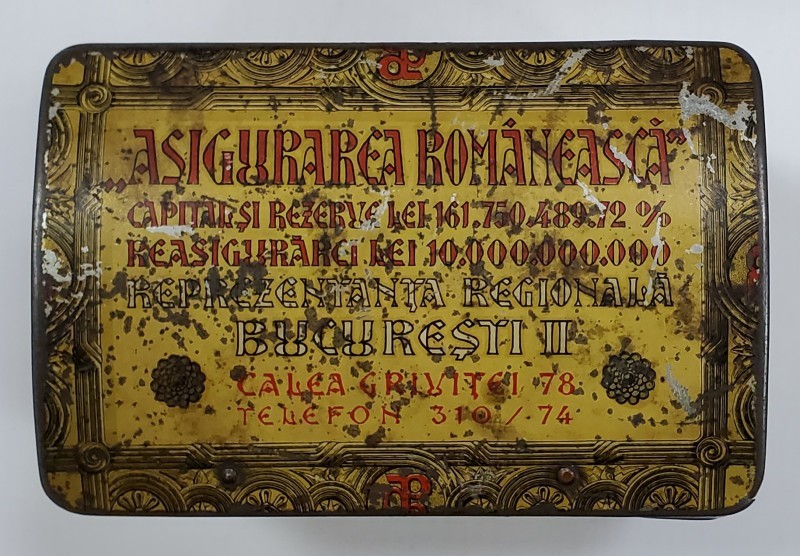 „ASIGURAREA ROMÂNEASCĂ”
CAPITAL ȘI REZERVE LEI 161.750.489.72 %
REASIGURĂRI LEI 10.000.000.000
REPREZENTANȚA REGIONALĂ
BUCUREȘTI II
CALEA GRIVIȚEI 78
TELEFON 310/74